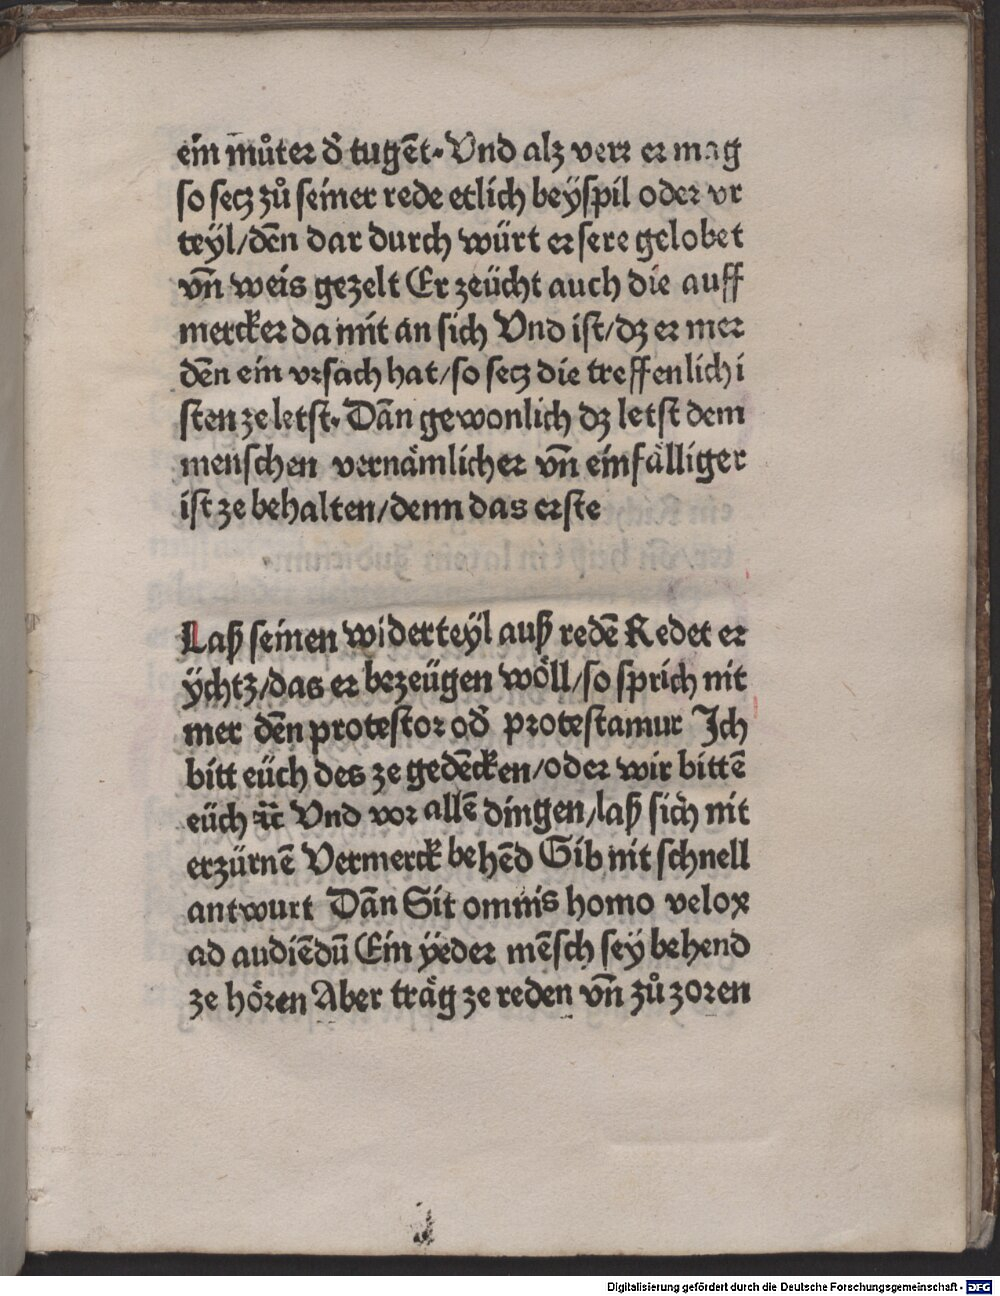 ein můter d̃ tugẽt. Vnd alz verr er mag
so secz zů seiner rede etlich beÿspil oder vr
teÿl/dẽn dar durch würt er sere gelobet
vñ weis gezelt Er zeücht auch die auff
mercker da mit an sich Vnd ist/dz er mer
dẽn ein vrsach hat/so secz die treffenlichi
sten ze letst. Dãn gewonlich dz letst dem
menschen vernämlicher vñ einfälliger
ist ze behalten/denn das erste
Laß seinen widerteÿl auß redẽ Redet er
ÿchtz/das er bezeügen wöll/so sprich nit
mer dẽn protestor od̃ protestamur Ich
bitt eüch des ze gedẽcken/oder wir bittẽ
eüch ⁊c̃ Vnd vor allẽ dingen/laß sich nit
erzürnẽ Vermerck behẽd Gib nit schnell
antwurt Dãn Sit omnis homo velox
ad audiẽdũ Ein ÿeder mẽsch sey behend
ze hören Aber träg ze reden vñ zů zoren
Digitalisierung gefördert durch die Deutsche Forschungsgemeinschaft - DFG